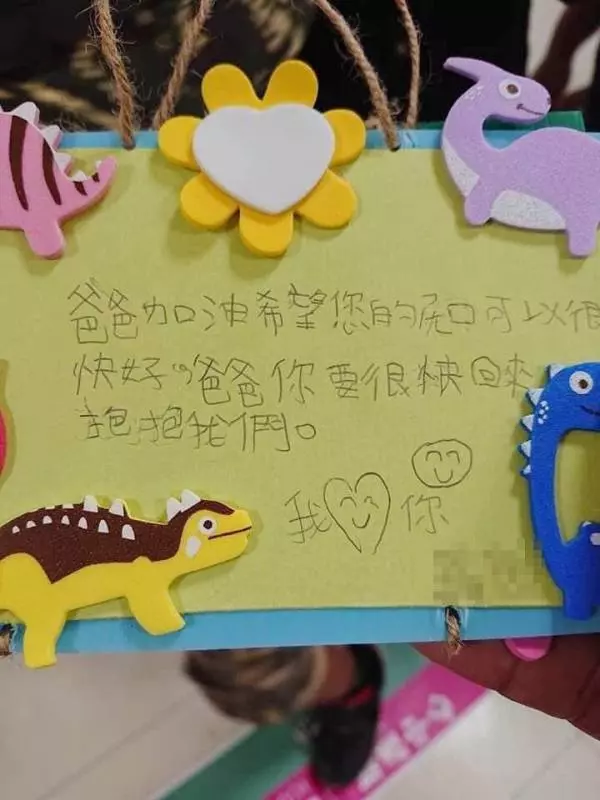 爸爸加油希望您的口可以很
快好。爸爸你要很快回來
抱抱我們。
我你